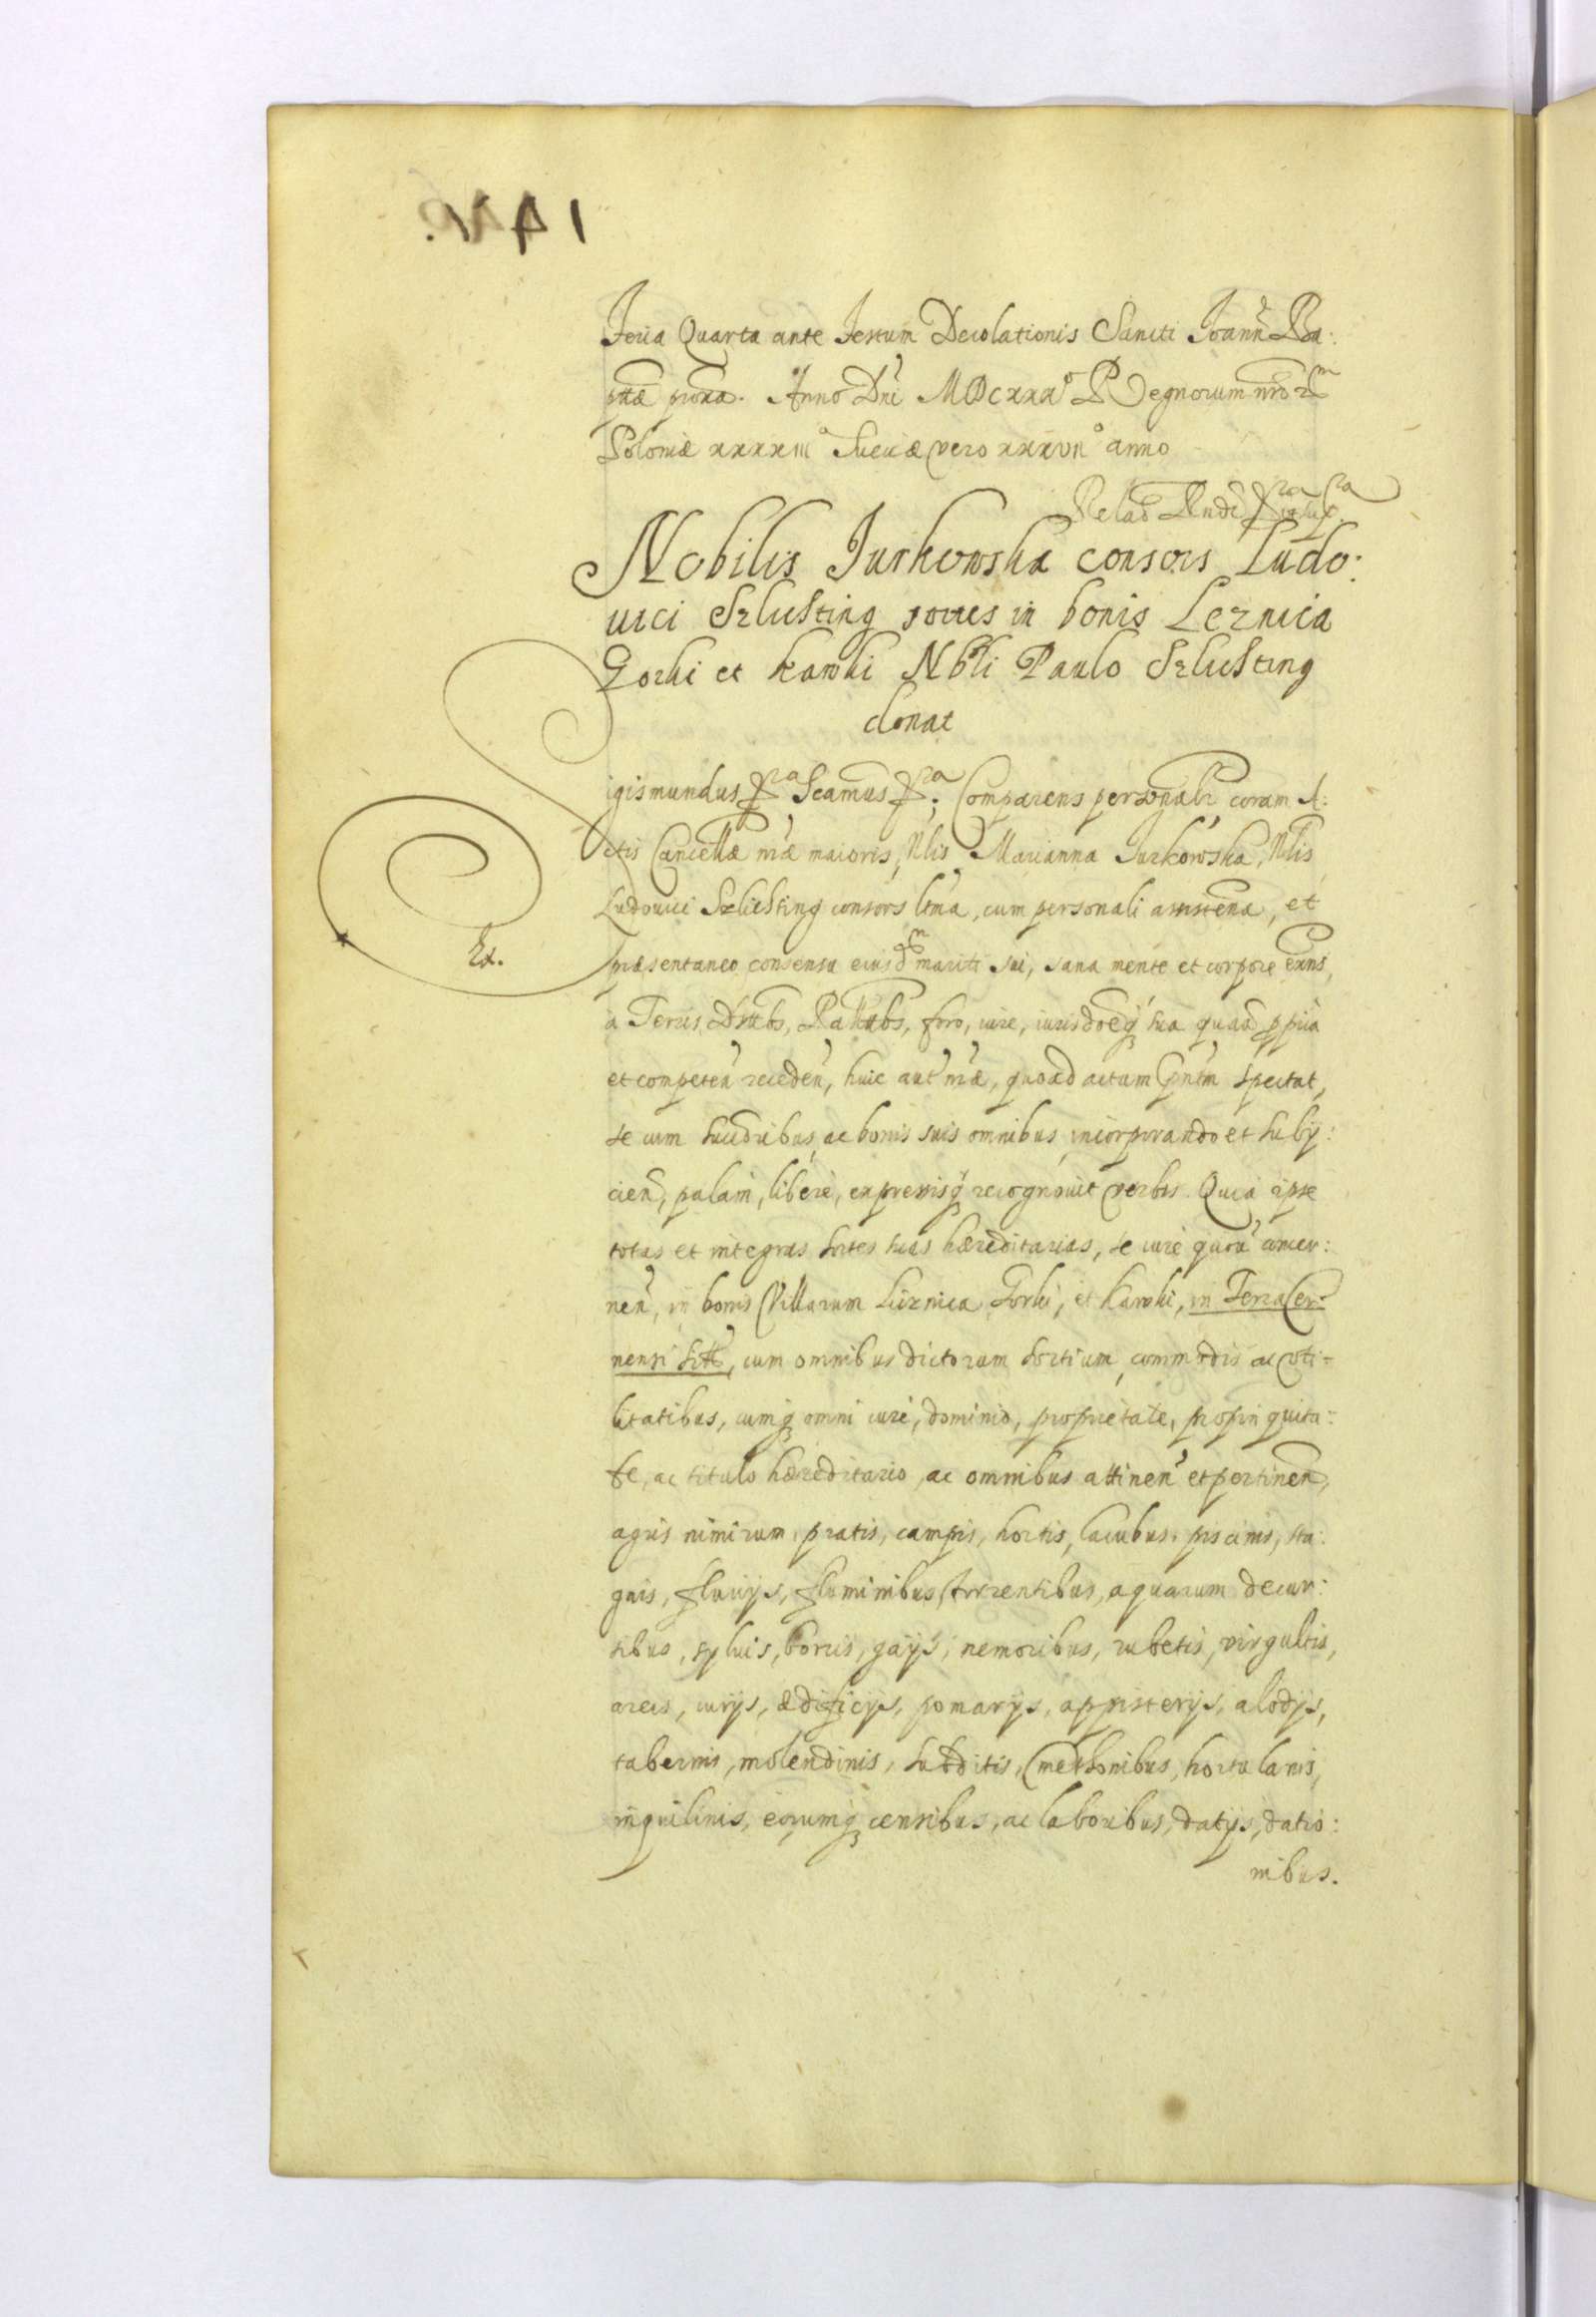 Feria Quarta ante Festum Decolationis Sancti Joann Ba:
ptæ proxa. Anno Dni MDCXXXº Regnorum nrorm
Poloniæ xxxxiiiº Sueciæ vero xxxviiº anno
Relao
Nobilis Jurkowska consors Ludo:
uici Szlichting sortes in bonis Leznica
Gorki et Karoki Nbli Paulo Szlichting
donat
Sigismundus Seamus Comparens personalr coram A:
ctis Cancellæ nræ maioris, Nlis Marianna Jurkowska, Nlis
Ludouici Szlichting consors ltma, cum personali assistena, et
Ex.
præsentaneo consensu eiusdm mariti sui, sana mente et corpore exns,
à Terris, Dnttbs, Pallttbs, foro, iure, iurisdoeq sua quauis ppria
et competen recedен, huic aut nræ, quoad actum pntm spectat,
se cum succribus, ac bonis suis omnibus incorporando et subij:
cien, palam, liberè, expressisq recognouit verbis. Quia ipse
totas et integras sortes suas hæreditarias, se iure quouis concer:
nen, in bonis Villarum Lieznica Gorki, et Karoki, in Terra Cer:
nensi sitts, cum omnibus dictorum sortium, commodis ac vti=
litatibus, cumq omni iure, dominio, proprietate, propinquita:
te, ac titulo hæreditario, ac omnibus attinen et pertinen,
agris nimirum, pratis, campis, hortis, lacubus, piscinis, sta:
gnis, fluuijs, fluminibus, torrentibus, aquarum decur:
sibus, syluis, borris, gajis, nemoribus, rubetis, virgultis,
areis, curijs, ædificijs, pomarijs, appisterijs, alodijs,
tabernis, molendinis, subditis, Cmethonibus, hortulanis,
inquilinis, eorumq censibus, ac laboribus, datijs, datio:
nibus.